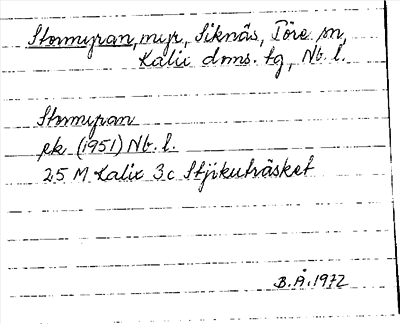 Stormyran, myr, Siknäs, Töre sn,
Kalix dms. tg, Nb. l.
Stormyran
ek (1951) Nb. l.
25 M Kalix 3c Stjikuträsket
B.Å. 1972